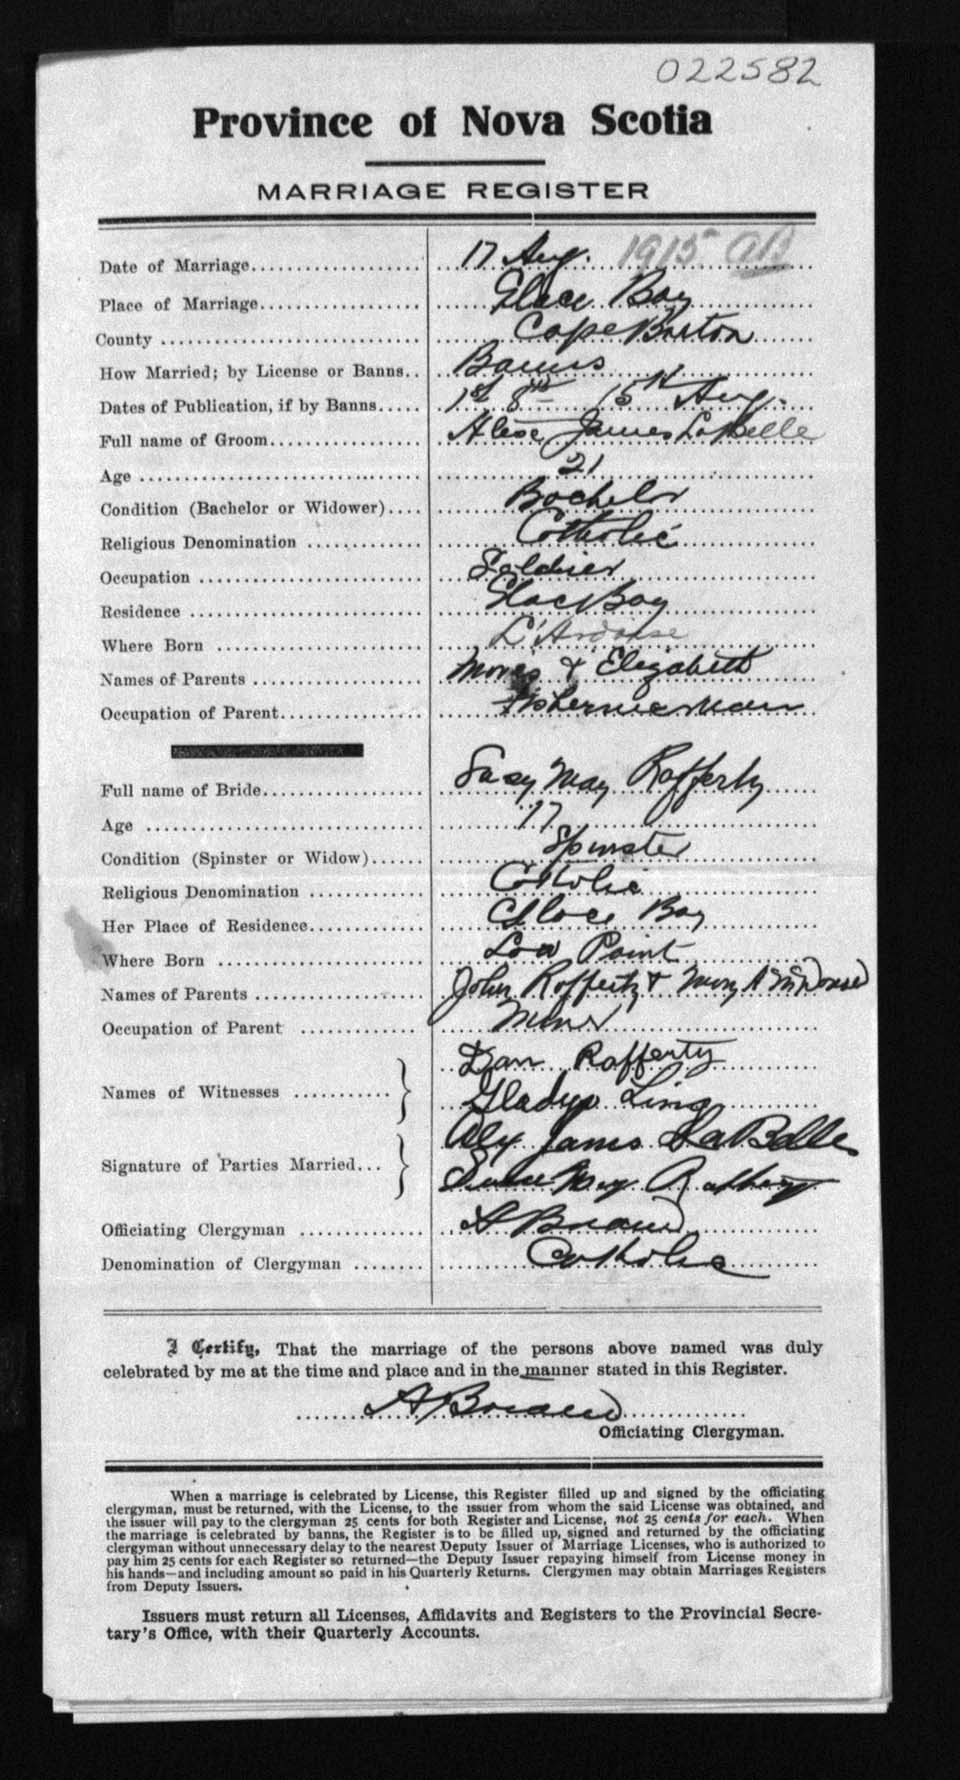 022582
Province of Nova Scotia
MARRIAGE REGISTER
Date of Marriage 17 Aug. 1915 AB
Place of Marriage Glace Bay
County Cape Breton
How Married; by License or Banns Banns
Dates of Publication, if by Banns 1st 8th 15th Aug.
Full name of Groom Alex James LaBelle
Age 21
Condition (Bachelor or Widower) Bachelor
Religious Denomination Catholic
Occupation Soldier
Residence Glace Bay
Where Born L'Ardoise
Names of Parents & Elizabeth
Occupation of Parent Fisherman
Full name of Bride May Rafferty
Age 17
Condition (Spinster or Widow) Spinster
Religious Denomination Catholic
Her Place of Residence Glace Bay
Where Born Low Point
Names of Parents John Rafferty & Mary A
Occupation of Parent Miner
Names of Witnesses Dan Rafferty
Gladys Ling
Signature of Parties Married Alex James LaBelle
May Rafferty
Officiating Clergyman A Briand
Denomination of Clergyman Catholic
I Certify, That the marriage of the persons above named was duly
celebrated by me at the time and place and in the manner stated in this Register.
A Briand
Officiating Clergyman.
When a marriage is celebrated by License, this Register filled up and signed by the officiating
clergyman, must be returned, with the License, to the issuer from whom the said License was obtained, and
the issuer will pay to the clergyman 25 cents for both Register and License, not 25 cents for each. When
the marriage is celebrated by banns, the Register is to be filled up, signed and returned by the officiating
clergyman without unnecessary delay to the nearest Deputy Issuer of Marriage Licenses, who is authorized to
pay him 25 cents for each Register so returned—the Deputy Issuer repaying himself from License money in
his hands—and including amount so paid in his Quarterly Returns. Clergymen may obtain Marriages Registers
from Deputy Issuers.
Issuers must return all Licenses, Affidavits and Registers to the Provincial Secre-
tary's Office, with their Quarterly Accounts.